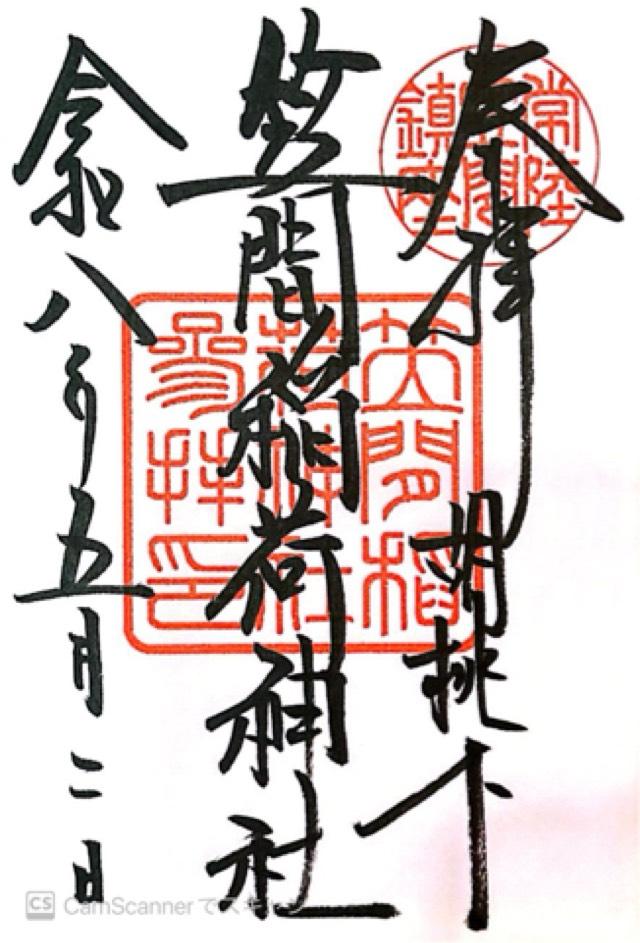 奉拝
胡桃下
笠間稲荷神社
令和八年五月二日
常陸
笠間
鎮座
笠間稲
荷神社
参拝印
CS CamScanner でスキャン